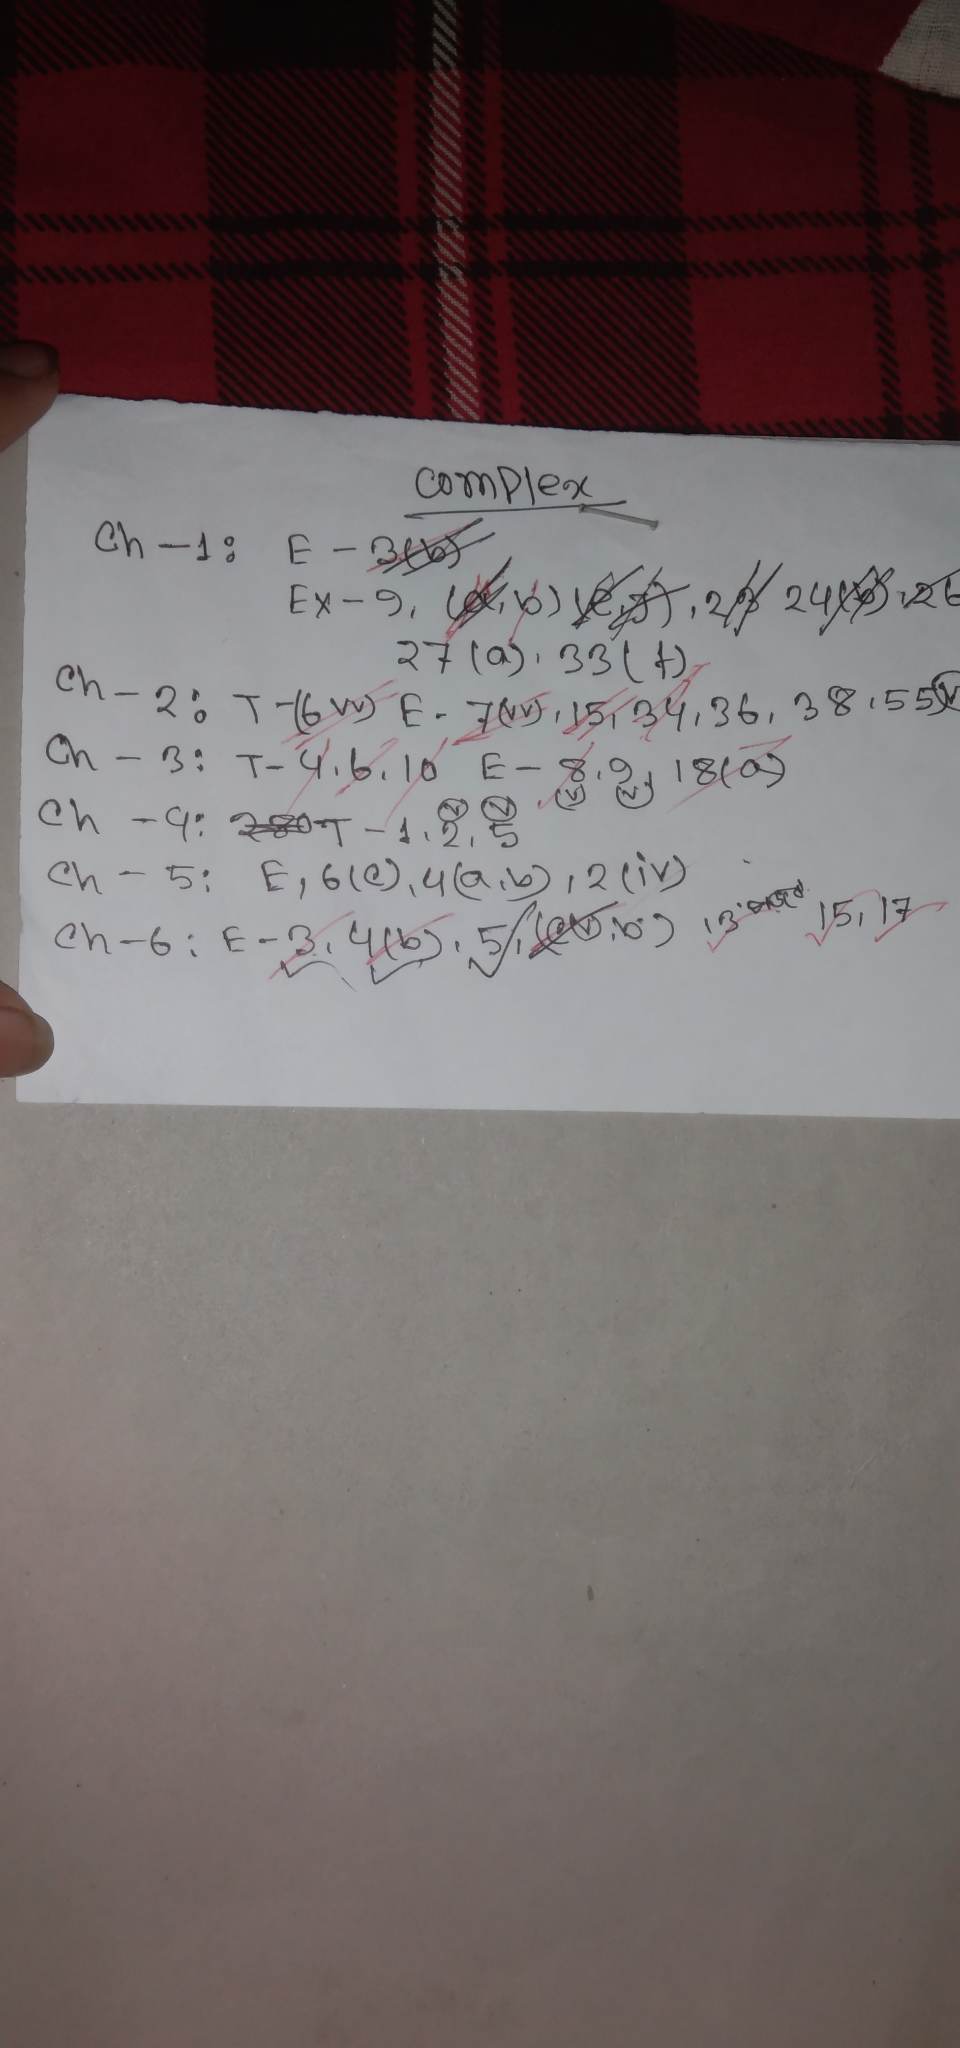 Complex
Ch-1: E - 3(b)
Ex-9, (a, b) 24(b), 26
27(a), 33(f)
Ch-2: T-(6 E - 7 15, 34, 36, 38, 55
Ch-3: T-4, 6, 10 E - 8, 9, 18(a)
Ch-4: T-1, 2, 5
Ch-5: E, 6(c), 4(a,b), 2(iv)
Ch-6: E-3, 4(b), 5, 15, 17